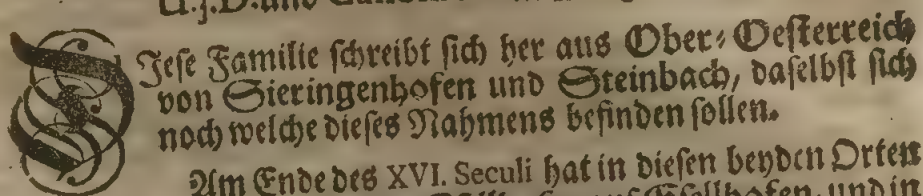 U.J.D. und
DJese Familie schreibt sich her aus Ober-Oesterreich
von Sieringenhofen und Steinbach, daselbst sich
noch welche dieses Nahmens befinden sollen.
Am Ende des XVI. Seculi hat in diesen beyden Orten
und in